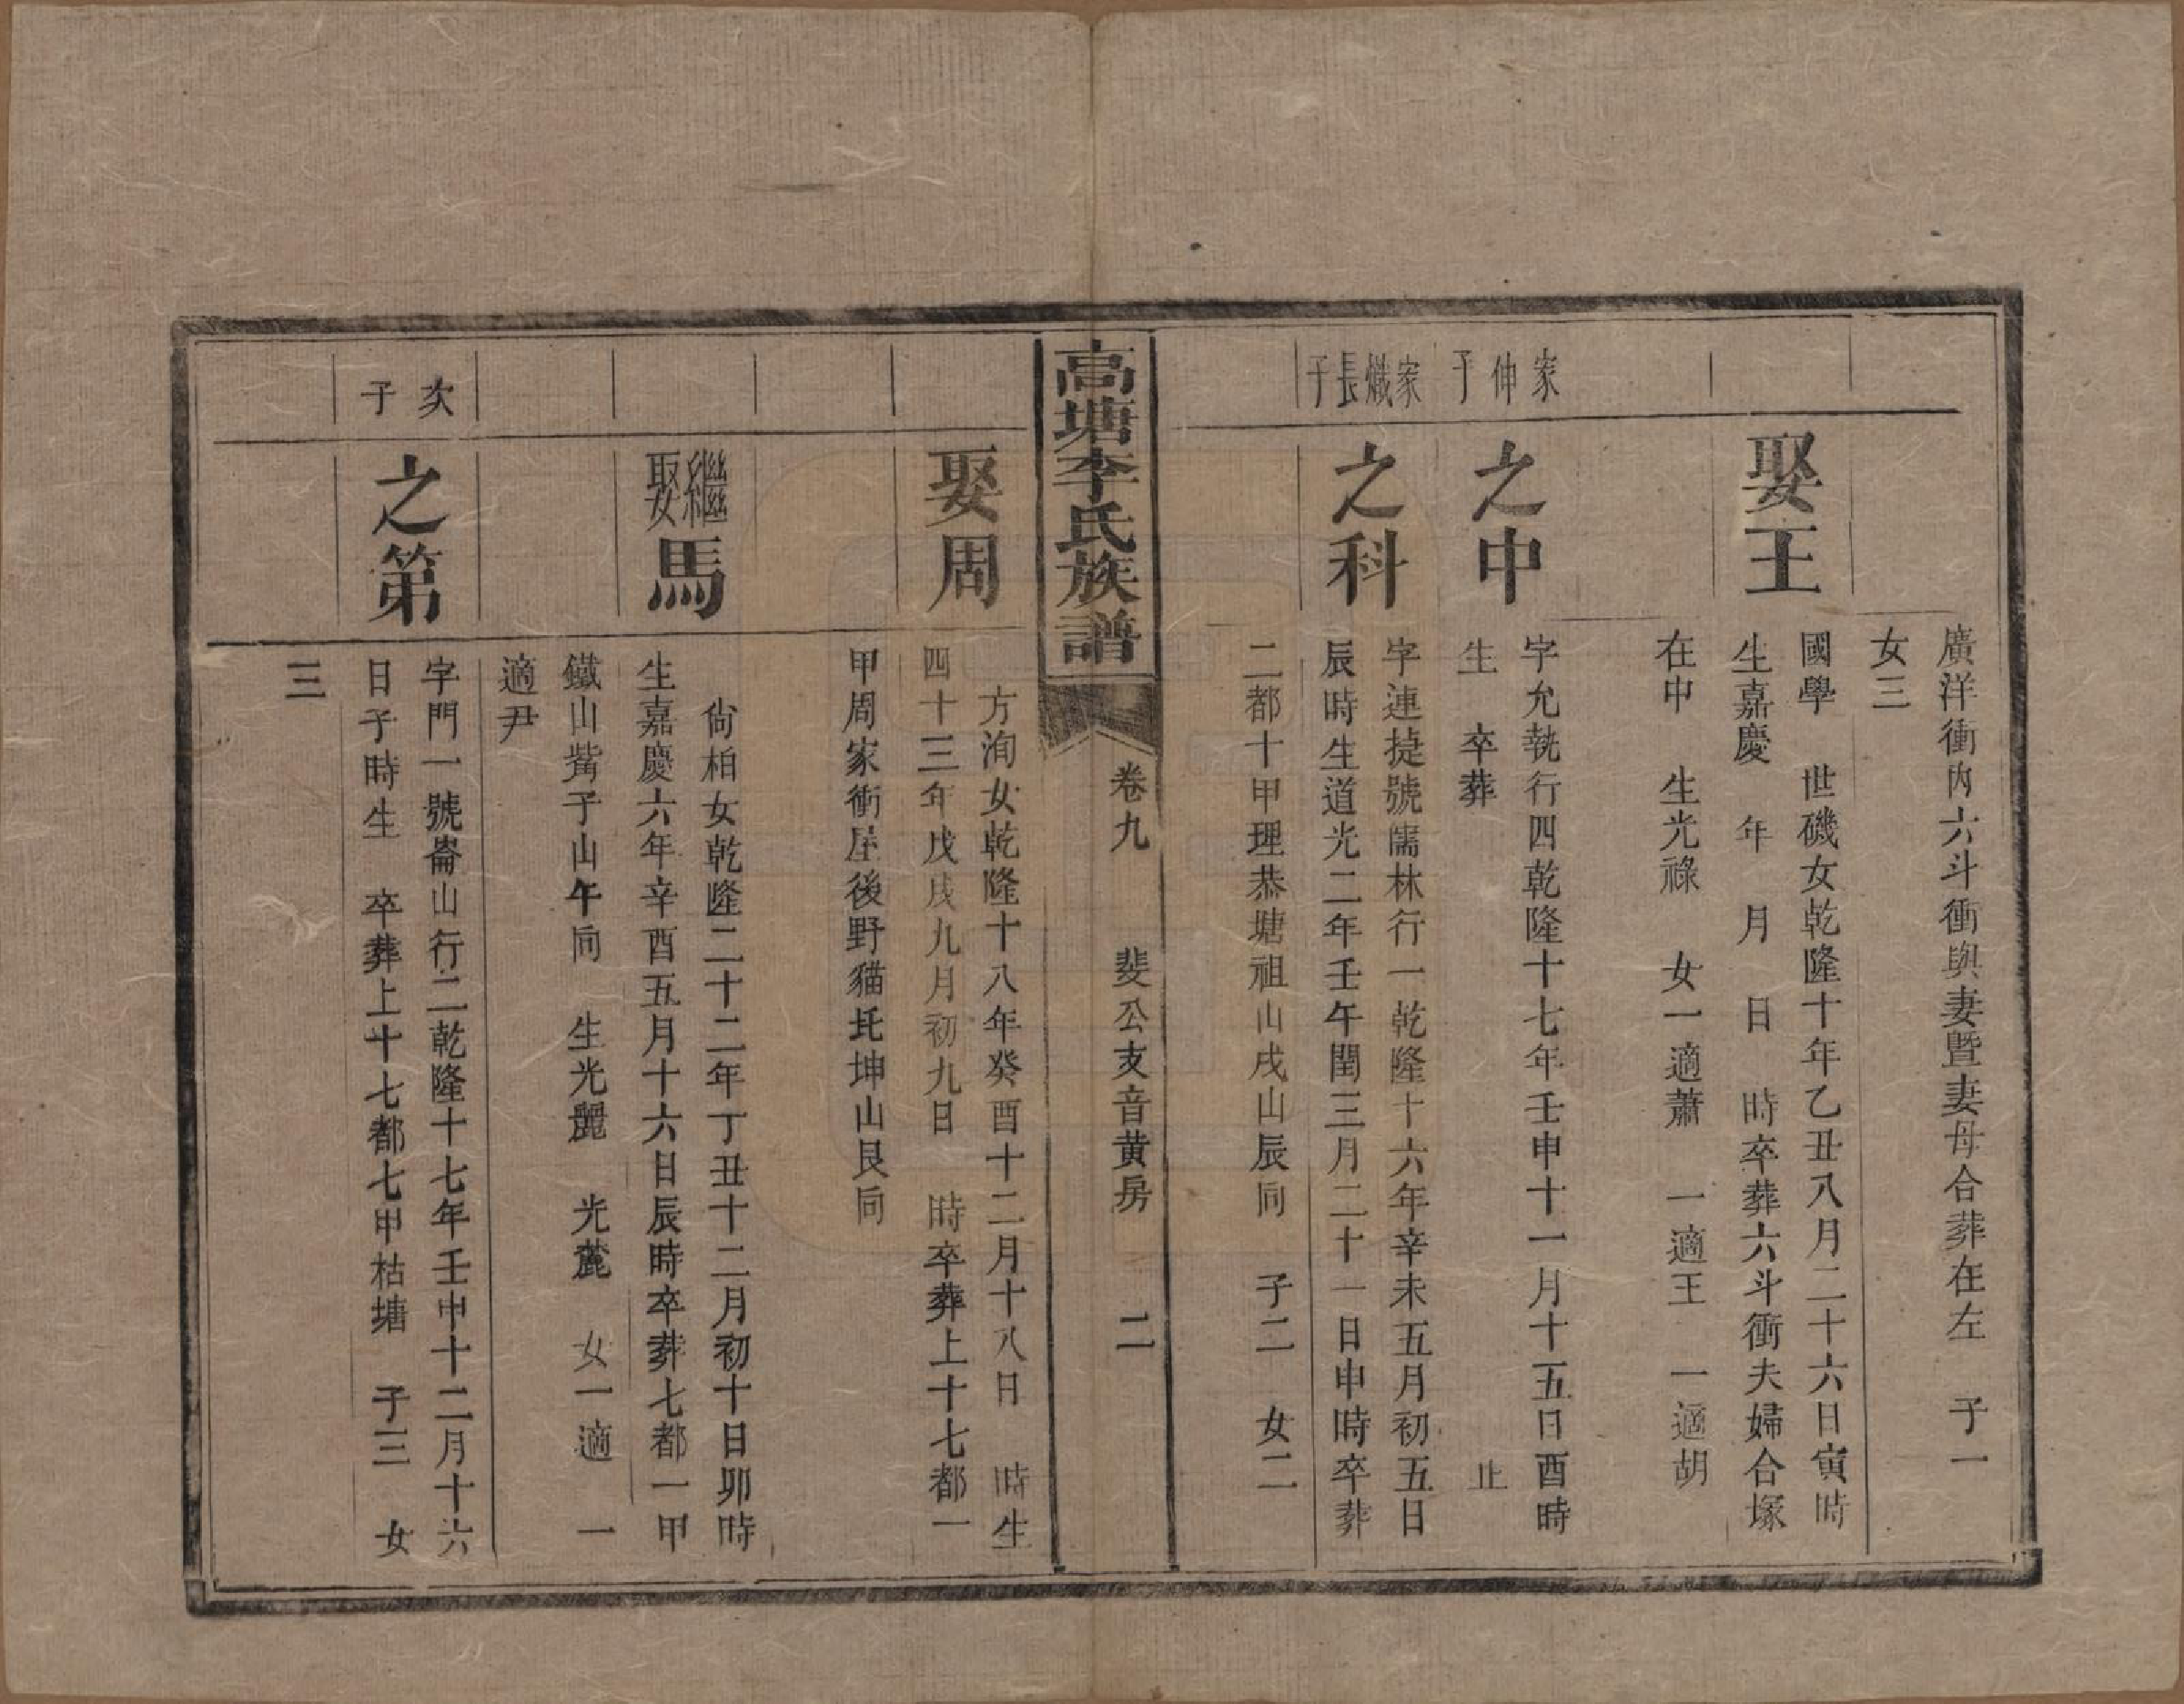 廣洋衝內六斗衝與妻暨妻母合葬在左　子一
女三
娶王
國學　世磯女乾隆十年乙丑八月二十六日寅時
生嘉慶　年　月　日　時卒葬六斗衝夫婦合塚
在中　生光祿　女一適蕭　一適王　一適胡
家伸子
之中
字允執行四乾隆十七年壬申十一月十五日酉時
生　卒葬　止
家熾長子
之科
字連捷號儒林行一乾隆十六年辛未五月初五日
辰時生道光二年壬午閏三月二十一日申時卒葬
二都十甲理恭塘祖山戌山辰向　子二　女二
高塘李氏族譜
卷九　斐公支音黄房　二
娶周
方洵女乾隆十八年癸酉十二月十八日　時生
四十三年戊戌九月初九日　時卒葬上十七都一
甲周家衝屋後野貓坉坤山艮向
繼娶馬
尙柏女乾隆二十二年丁丑十二月初十日卯時
生嘉慶六年辛酉五月十六日辰時卒葬七都一甲
鐵山觜子山午向　生光麗　光麓　女一適　一
適尹
次子
之第
字門一號崙山行二乾隆十七年壬申十二月十六
日子時生　卒葬上十七都七甲枯塘　子三　女
三